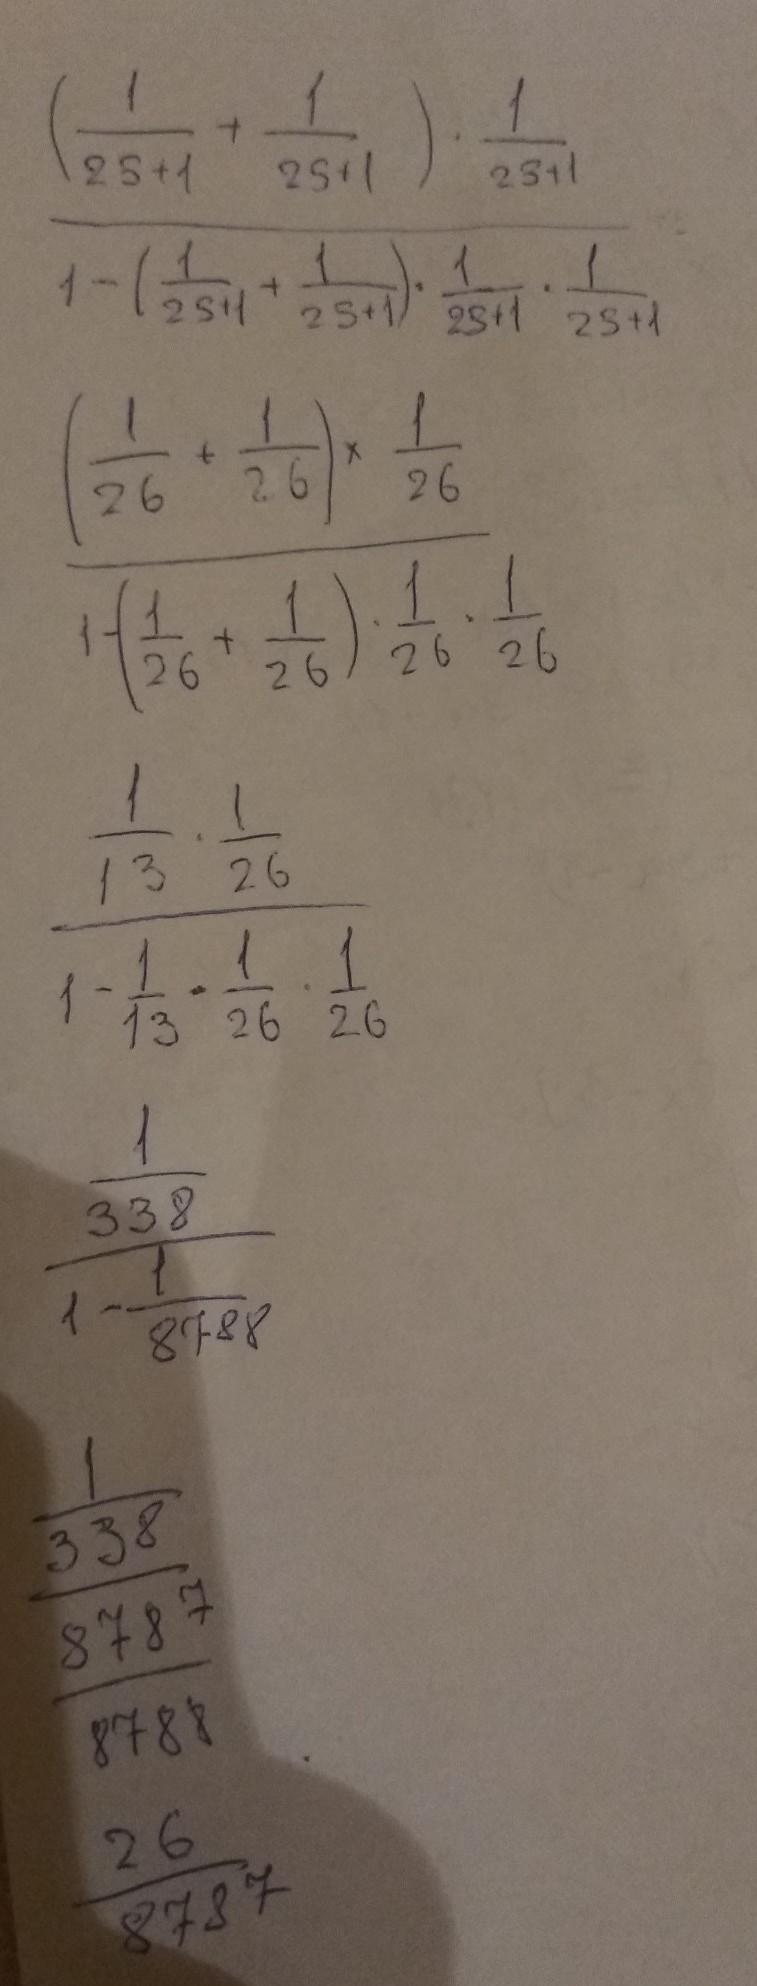 (1/(2S+1) + 1/(2S+1)) · 1/(2S+1)
1-(1/(2S+1) + 1/(2S+1)) · 1/(2S+1) · 1/(2S+1)
(1/26 + 1/26) × 1/26
1-(1/26 + 1/26) · 1/26 · 1/26
1/13 · 1/26
1 - 1/13 · 1/26 · 1/26
1/338
1 - 1/8788
1
338
8787
8788
26
8787